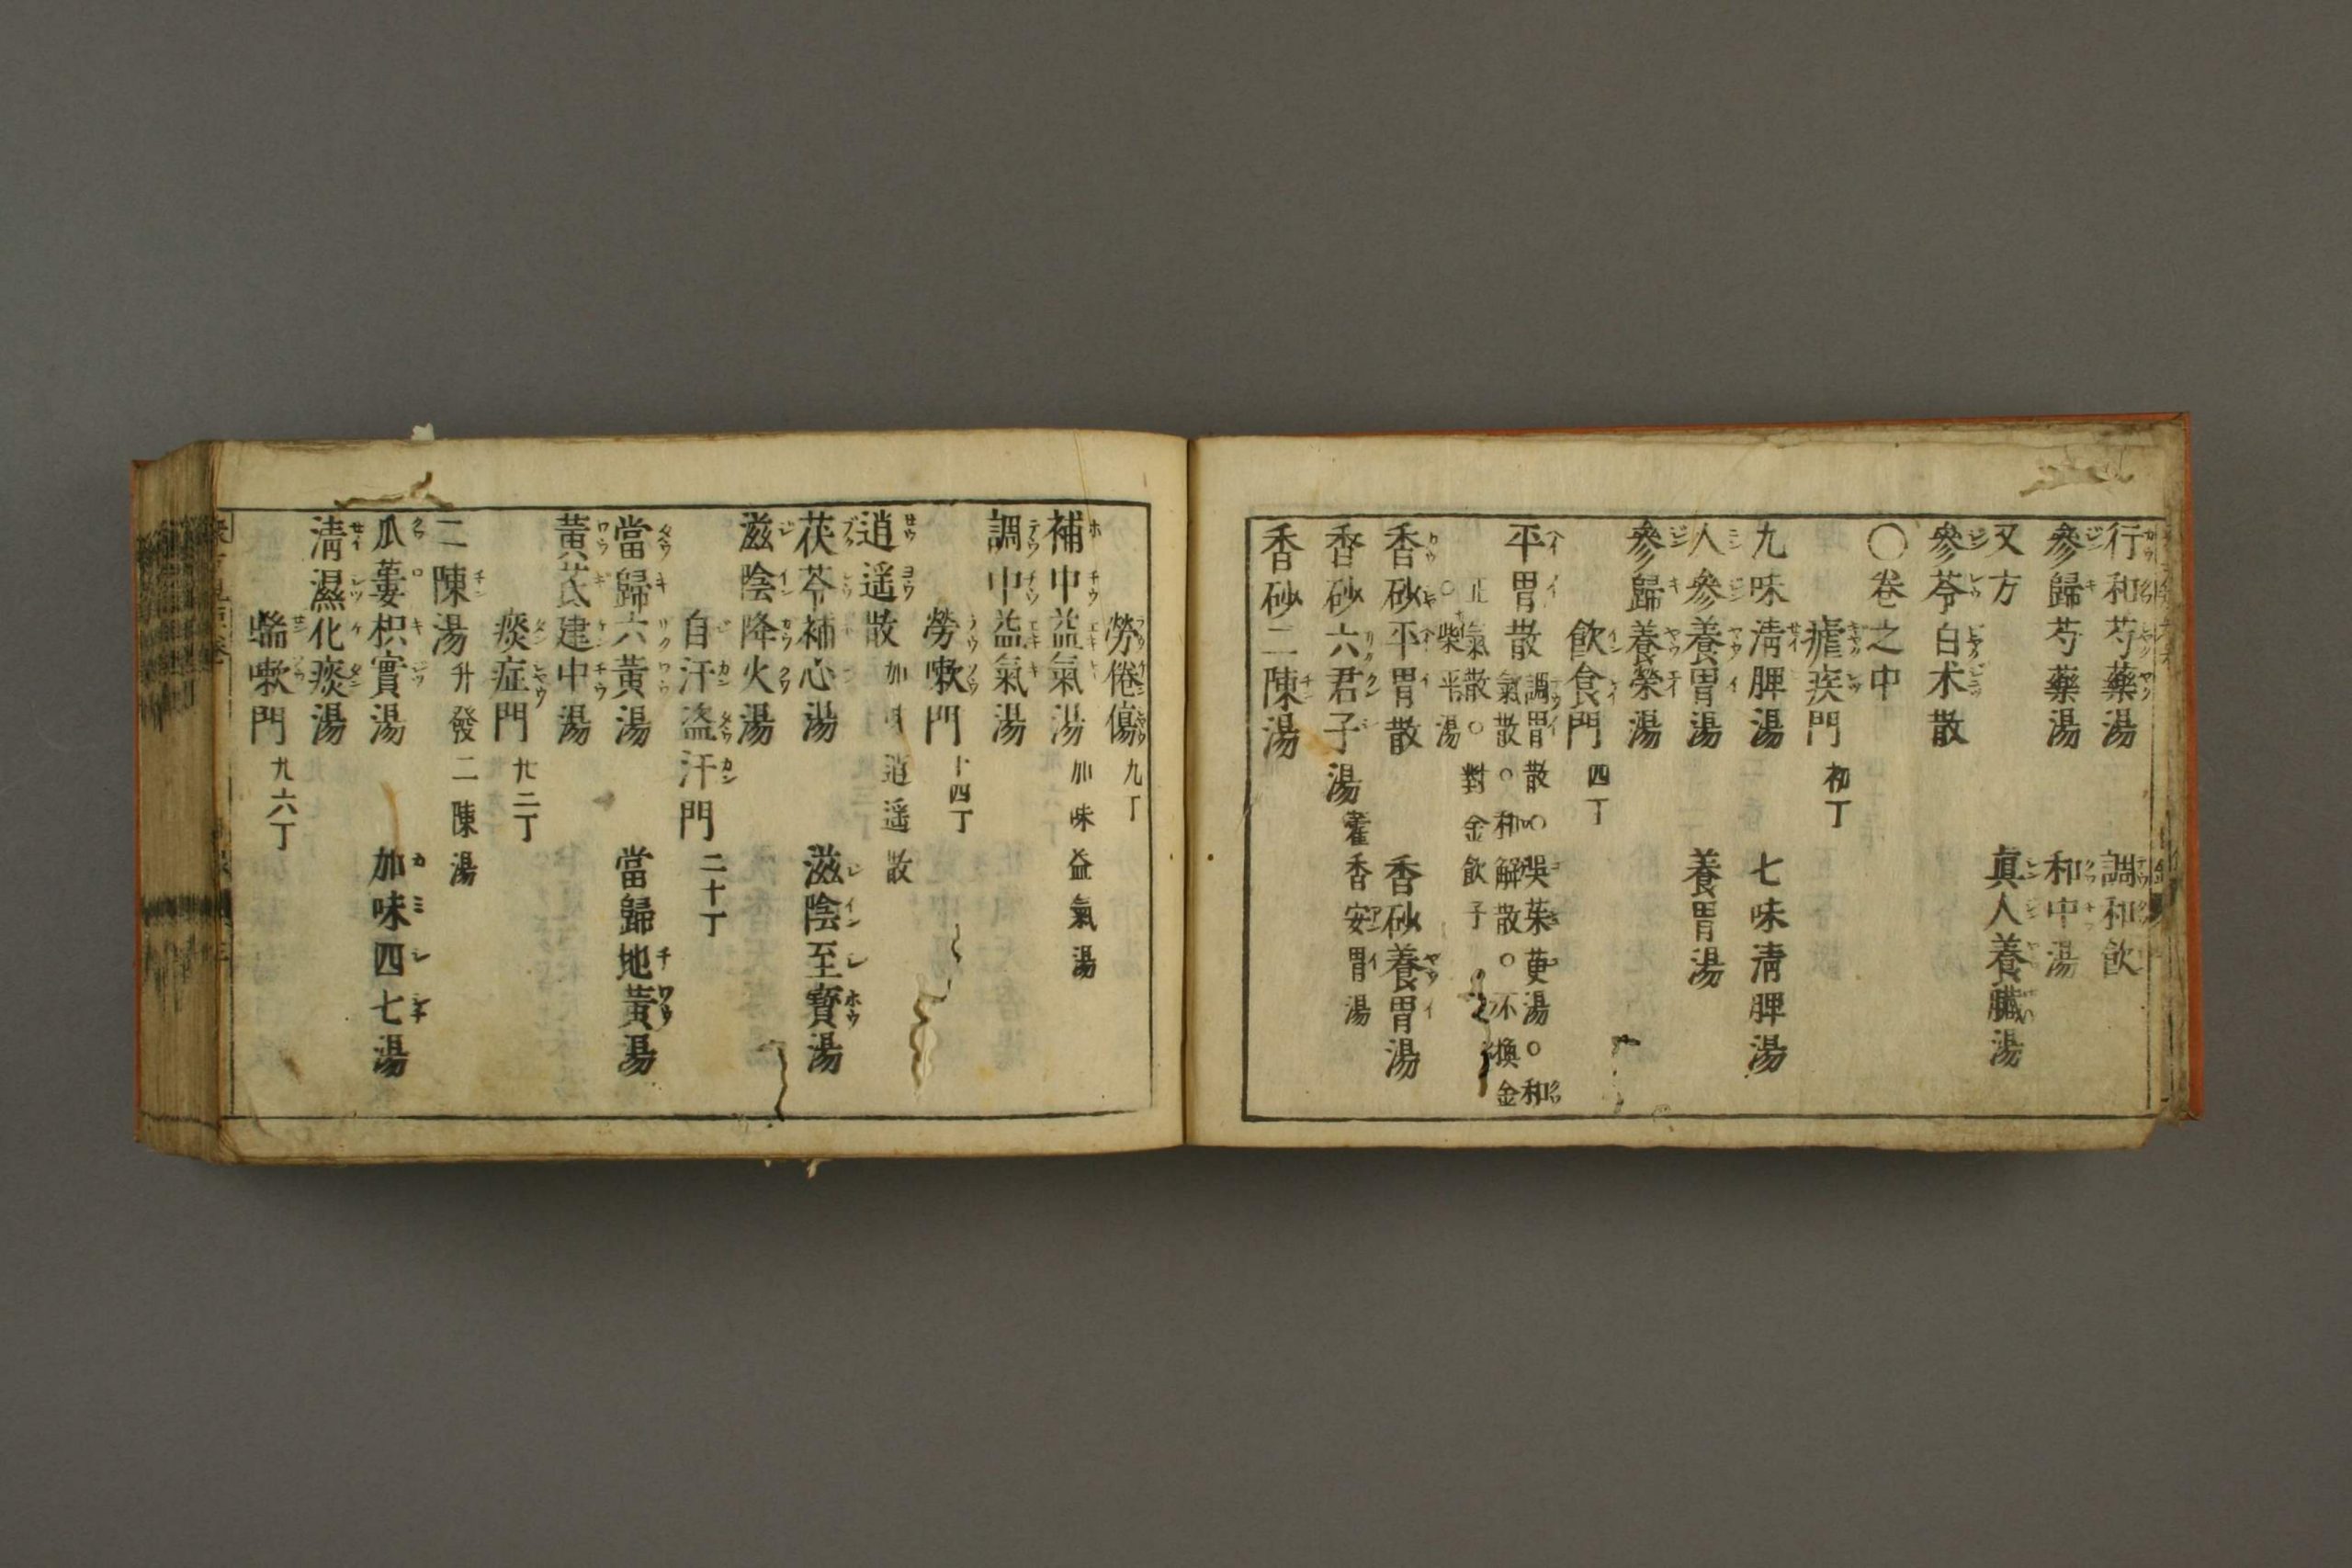 行和芍藥湯 調和飲
參歸芍藥湯 和中湯
又方 眞人養臟湯
參苓白朮散
〇卷之中
瘧疾門 初丁
九味清脾湯 七味清脾湯
人參養胃湯 養胃湯
參歸養榮湯
飲食門 四丁
平胃散 調胃散〇吳茱萸湯〇和
氣散〇和解散〇不換金
正氣散〇對金飲子
〇柴平湯
香砂平胃散 香砂養胃湯
香砂六君子湯 藿香安胃湯
香砂二陳湯
勞倦傷 九丁
補中益氣湯 加味益氣湯
調中益氣湯
勞嗽門 十四丁
逍遥散 加味逍遥散
茯苓補心湯 滋陰至寶湯
滋陰降火湯
自汗盗汗門 二十丁
當歸六黃湯 當歸地黃湯
黃芪建中湯
痰症門 廿二丁
二陳湯 升發二陳湯
瓜蔞枳實湯 加味四七湯
清濕化痰湯
喘嗽門 廿六丁